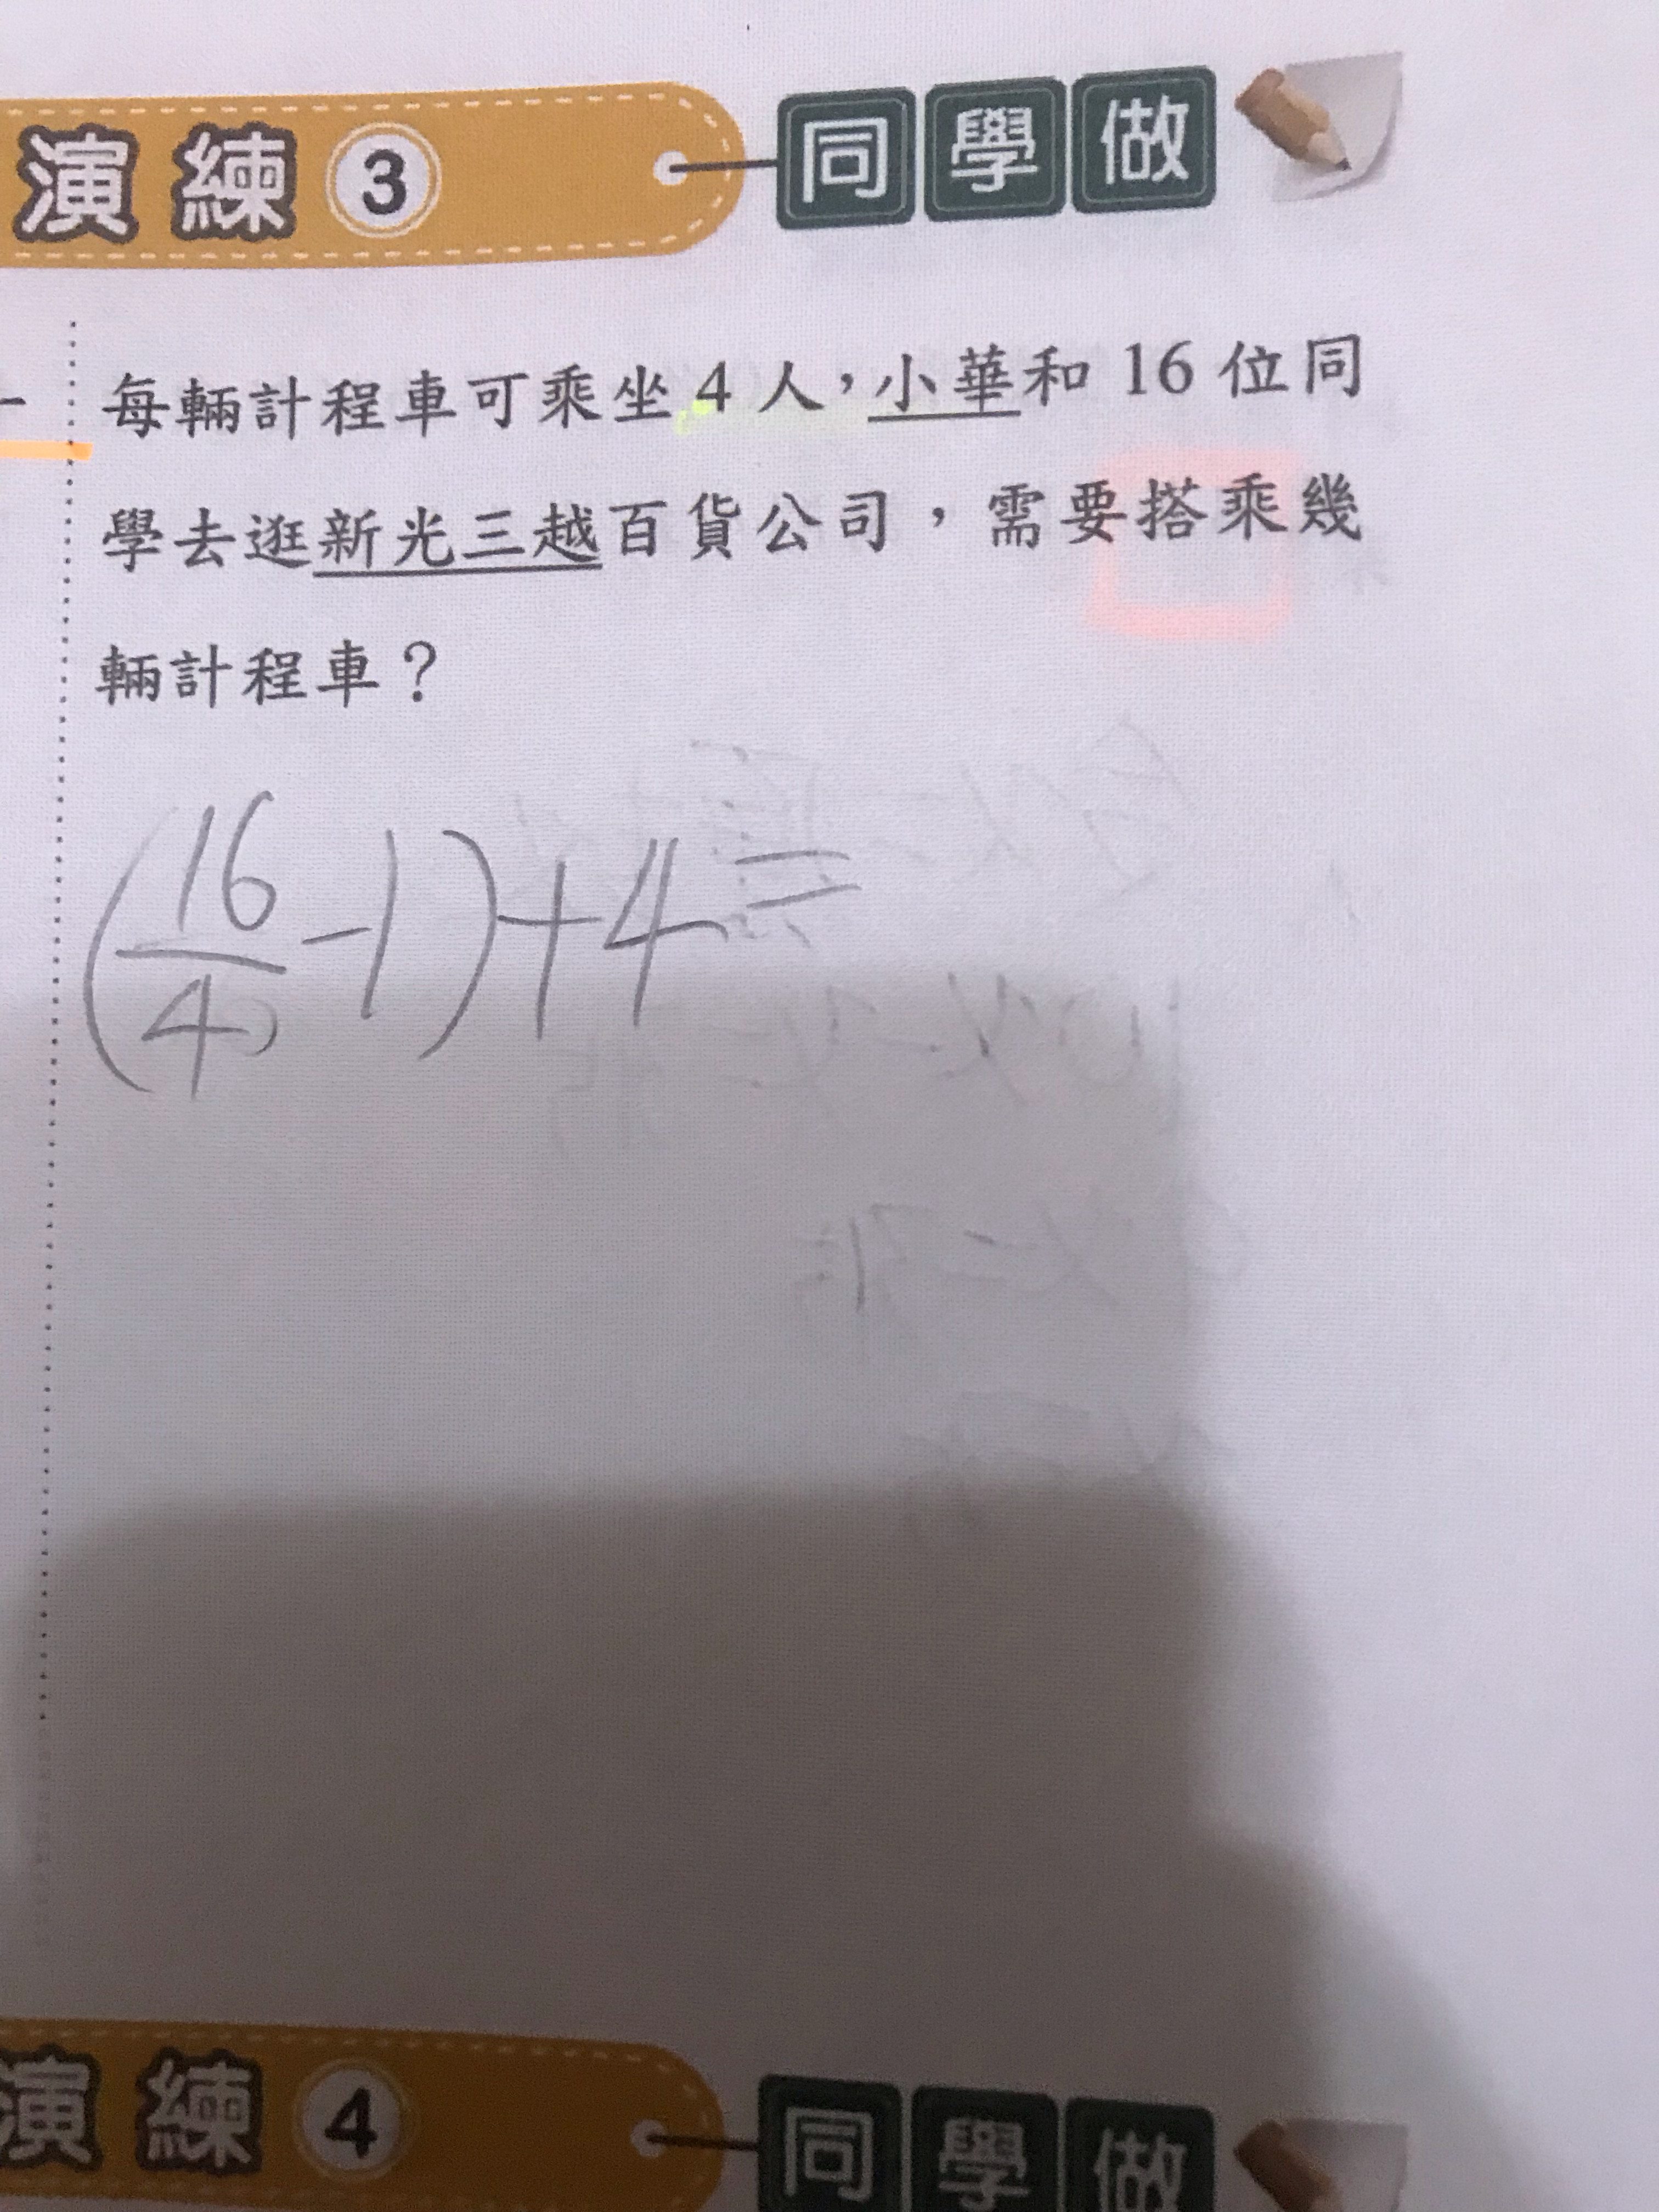 演練3 同學做
每輛計程車可乘坐4人，小華和16位同
學去逛新光三越百貨公司，需要搭乘幾
輛計程車？
(16/4-1)+4=
演練4 同學做